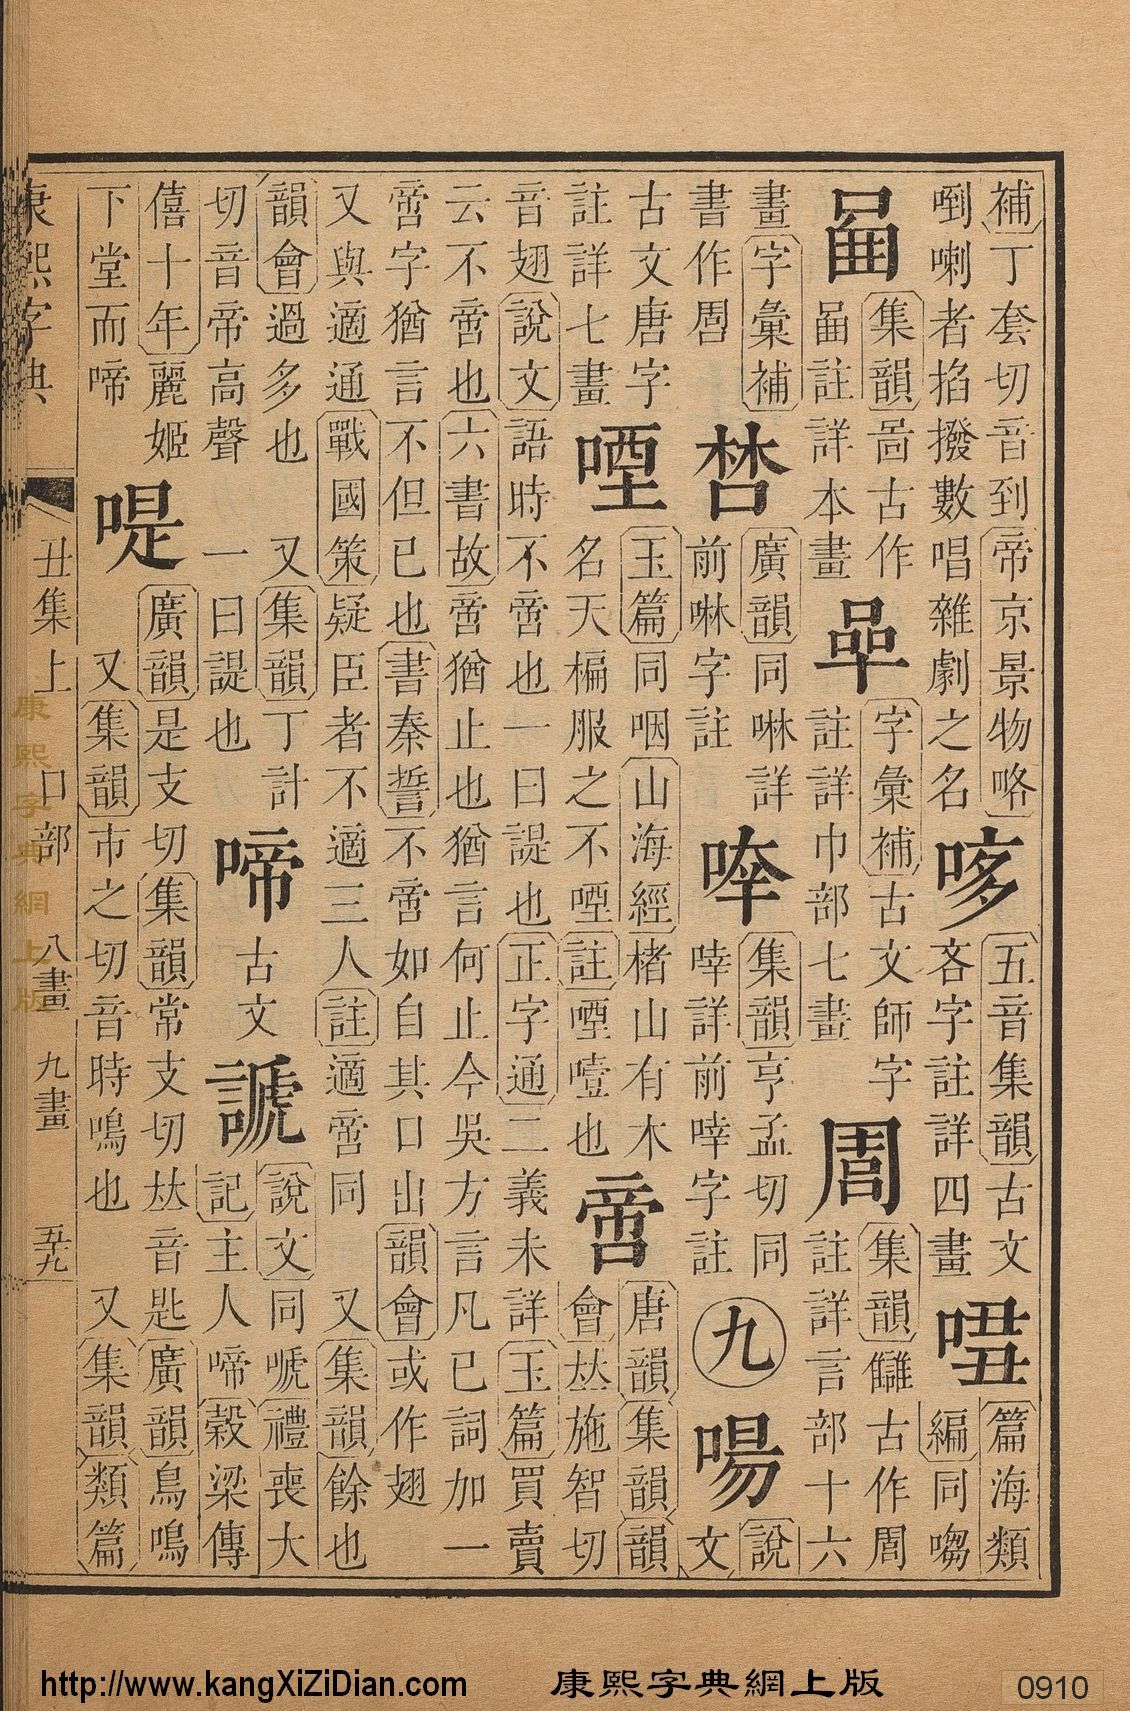 補丁套切音到帝京景物略
喇者掐撥數唱雜劇之名
五音集韻古文
吝字註詳四畫
篇海類
編同
集韻啚古作
註詳本畫
字彙補古文師字
註詳巾部七畫
集韻讎古作
註詳言部十六
畫字彙補
書作
廣韻同啉詳
前啉字註
集韻亨孟切同
啈詳前啈字註
九
啺
說
文
古文唐字
註詳七畫
㖶
玉篇同咽山海經楮山有木
名天楄服之不㖶註㖶噎也
啻
唐韻集韻韻
會𠀤施智切
音翅說文語時不啻也一曰諟也正字通二義未詳玉篇買賣
云不啻也六書故啻猶止也猶言何止今吳方言凡已詞加一
啻字猶言不但已也書秦誓不啻如自其口出韻會或作翅
又與適通戰國策疑臣者不適三人註適啻同 又集韻餘也
韻會過多也 又集韻丁計
切音帝高聲 一曰諟也
啼
古文
謕
說文同嗁禮喪大
記主人啼穀梁傳
僖十年麗姬
下堂而啼
廣韻是支切集韻常支切𠀤音匙廣韻鳥鳴
又集韻市之切音時鳴也 又集韻類篇
康熙字典 丑集上 口部 八畫 九畫 五九
康熙字典網上版
http://www.kangXiZiDian.com 康熙字典網上版 0910